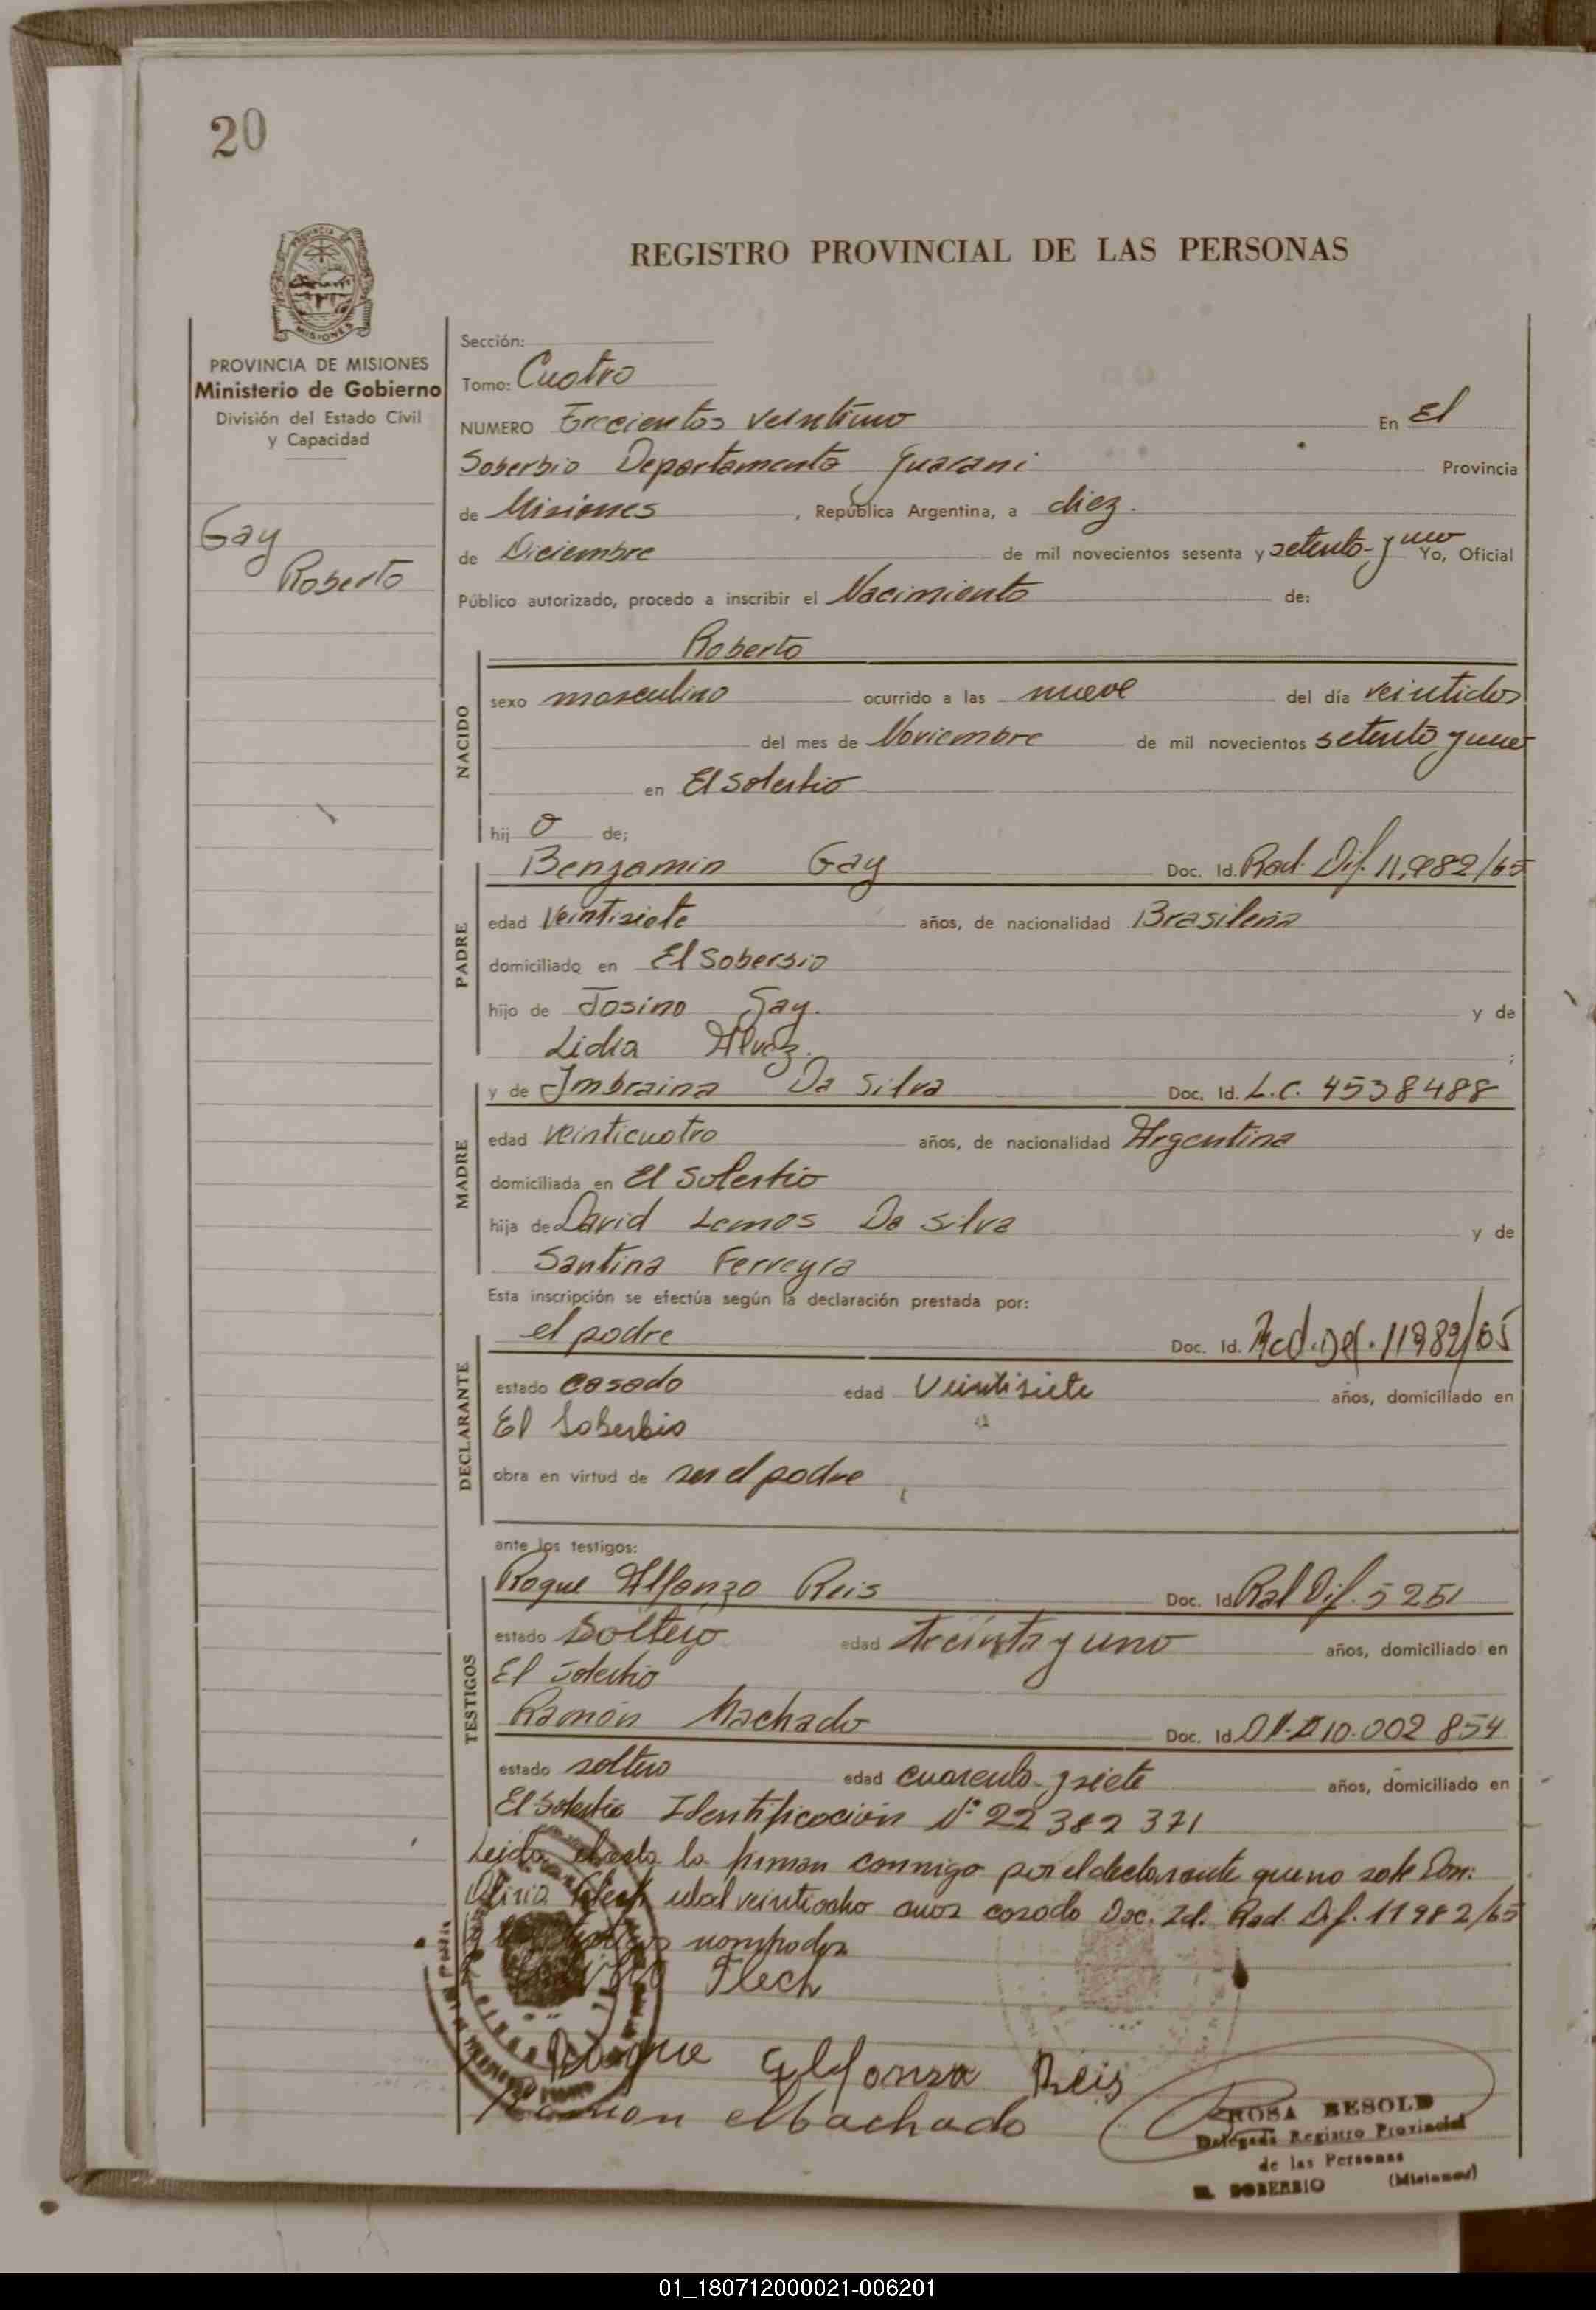 20
REGISTRO PROVINCIAL DE LAS PERSONAS
PROVINCIA DE MISIONES
Ministerio de Gobierno
División del Estado Civil
y Capacidad
Gay
Roberto
Sección:
Tomo: Cuatro
NUMERO Trecientos veintiuno En El
Soberbio Departamento Guarani Provincia
de Misiones, República Argentina, a diez.
de Diciembre de mil novecientos sesenta y setenta y uno Yo, Oficial
Público autorizado, procedo a inscribir el Nacimiento de:
NACIDO
Roberto
sexo masculino ocurrido a las nueve del día veintidos
del mes de Noviembre de mil novecientos setenta y uno
en El Soberbio
hij o de;
PADRE
Benjamin Gay Doc. Id. Rad. Dif. 11,982/65
edad veintisiete años, de nacionalidad Brasileña
domiciliado en El Soberbio
hijo de Josino Gay. y de
Lidia Alvez. ;
MADRE
y de Imbraina Da Silva Doc. Id. L.C. 4538488
edad veinticuatro años, de nacionalidad Argentina
domiciliada en El Soberbio
hija de David Lemos Da Silva y de
Santina Ferreyra
Esta inscripción se efectúa según la declaración prestada por:
DECLARANTE
el padre Doc. Id. Rad. Def. 11982/65
estado casado edad veintisiete años, domiciliado en
El Soberbio
obra en virtud de ser el padre
ante los testigos:
TESTIGOS
Roque Alfonzo Reis Doc. Id Rad Dif. 5251
estado Soltero edad treinta y uno años, domiciliado en
El Soberbio
Ramón Machado Doc. Id 10.002 854
estado soltero edad cuarenta y siete años, domiciliado en
El Soberbio Identificación Nº 22382371
Leida el acta la firman conmigo por el declarante que no sabe Don:
edad veintiocho años casado Doc. Id. Rad. Dif. 11982/65
nombrados
Flech
Roque Alfonso Reis
Ramon Machado
ROSA BESOLD
Delegada Registro Provincial
de las Personas
EL SOBERBIO (Misiones)
01_180712000021-006201